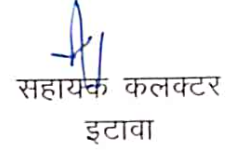 सहायक कलक्टर
इटावा